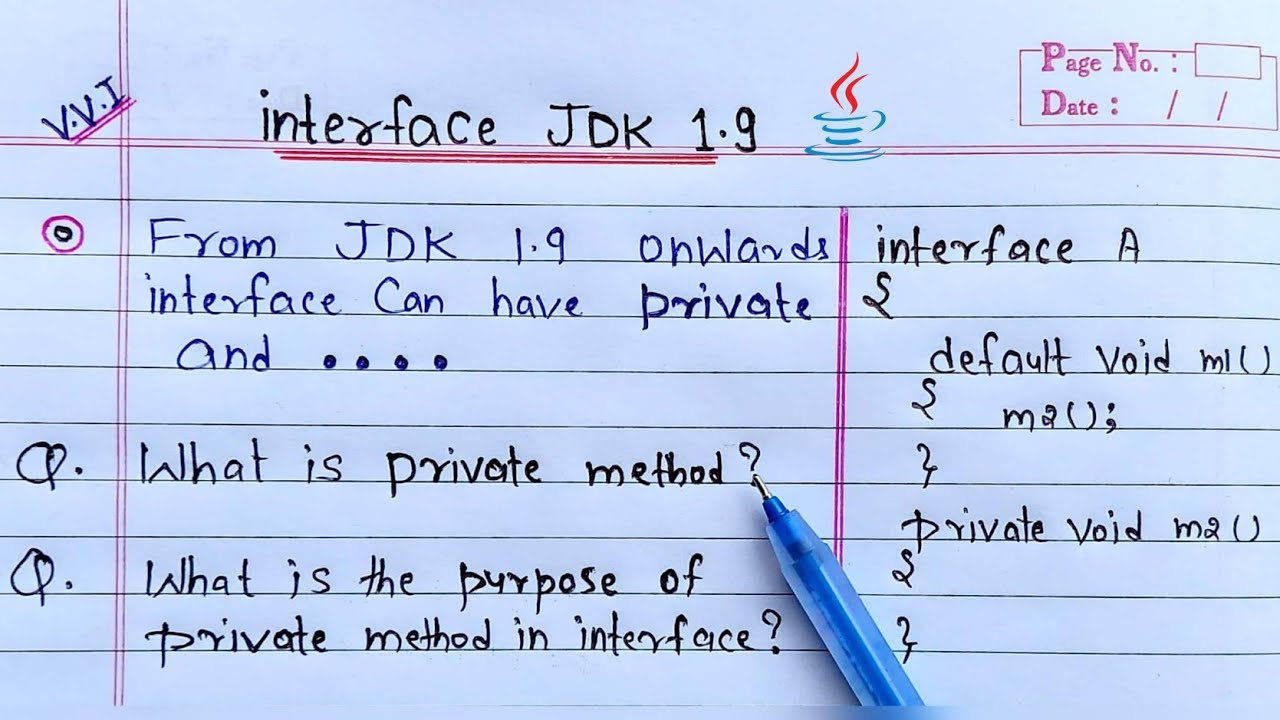 Page No. :
Date : / /
V.V.I
interface JDK 1.9
From JDK 1.9 onwards
interface Can have private
and ....
Q. What is private method?
Q. What is the purpose of
private method in interface?
interface A
{
default void m1()
{ m2();
}
private void m2()
{
}